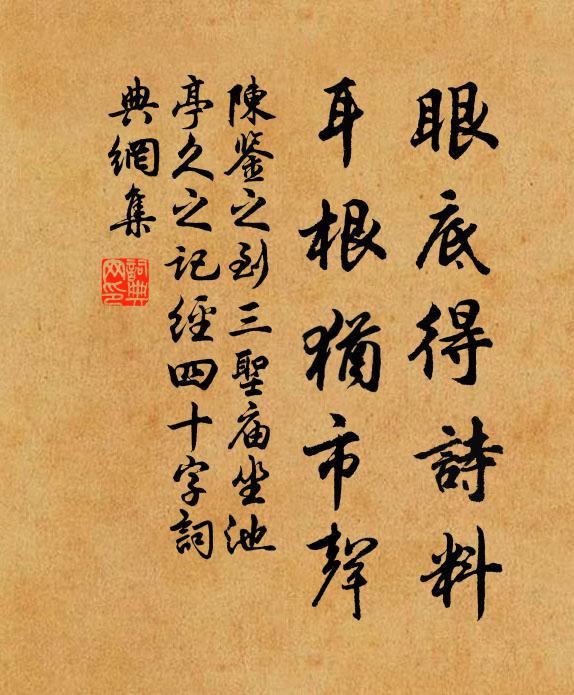 眼底得詩料
耳根猶市聲
陳鉴之到三聖庙坐池
亭久之记經四十字詞
典網集
詞典網印